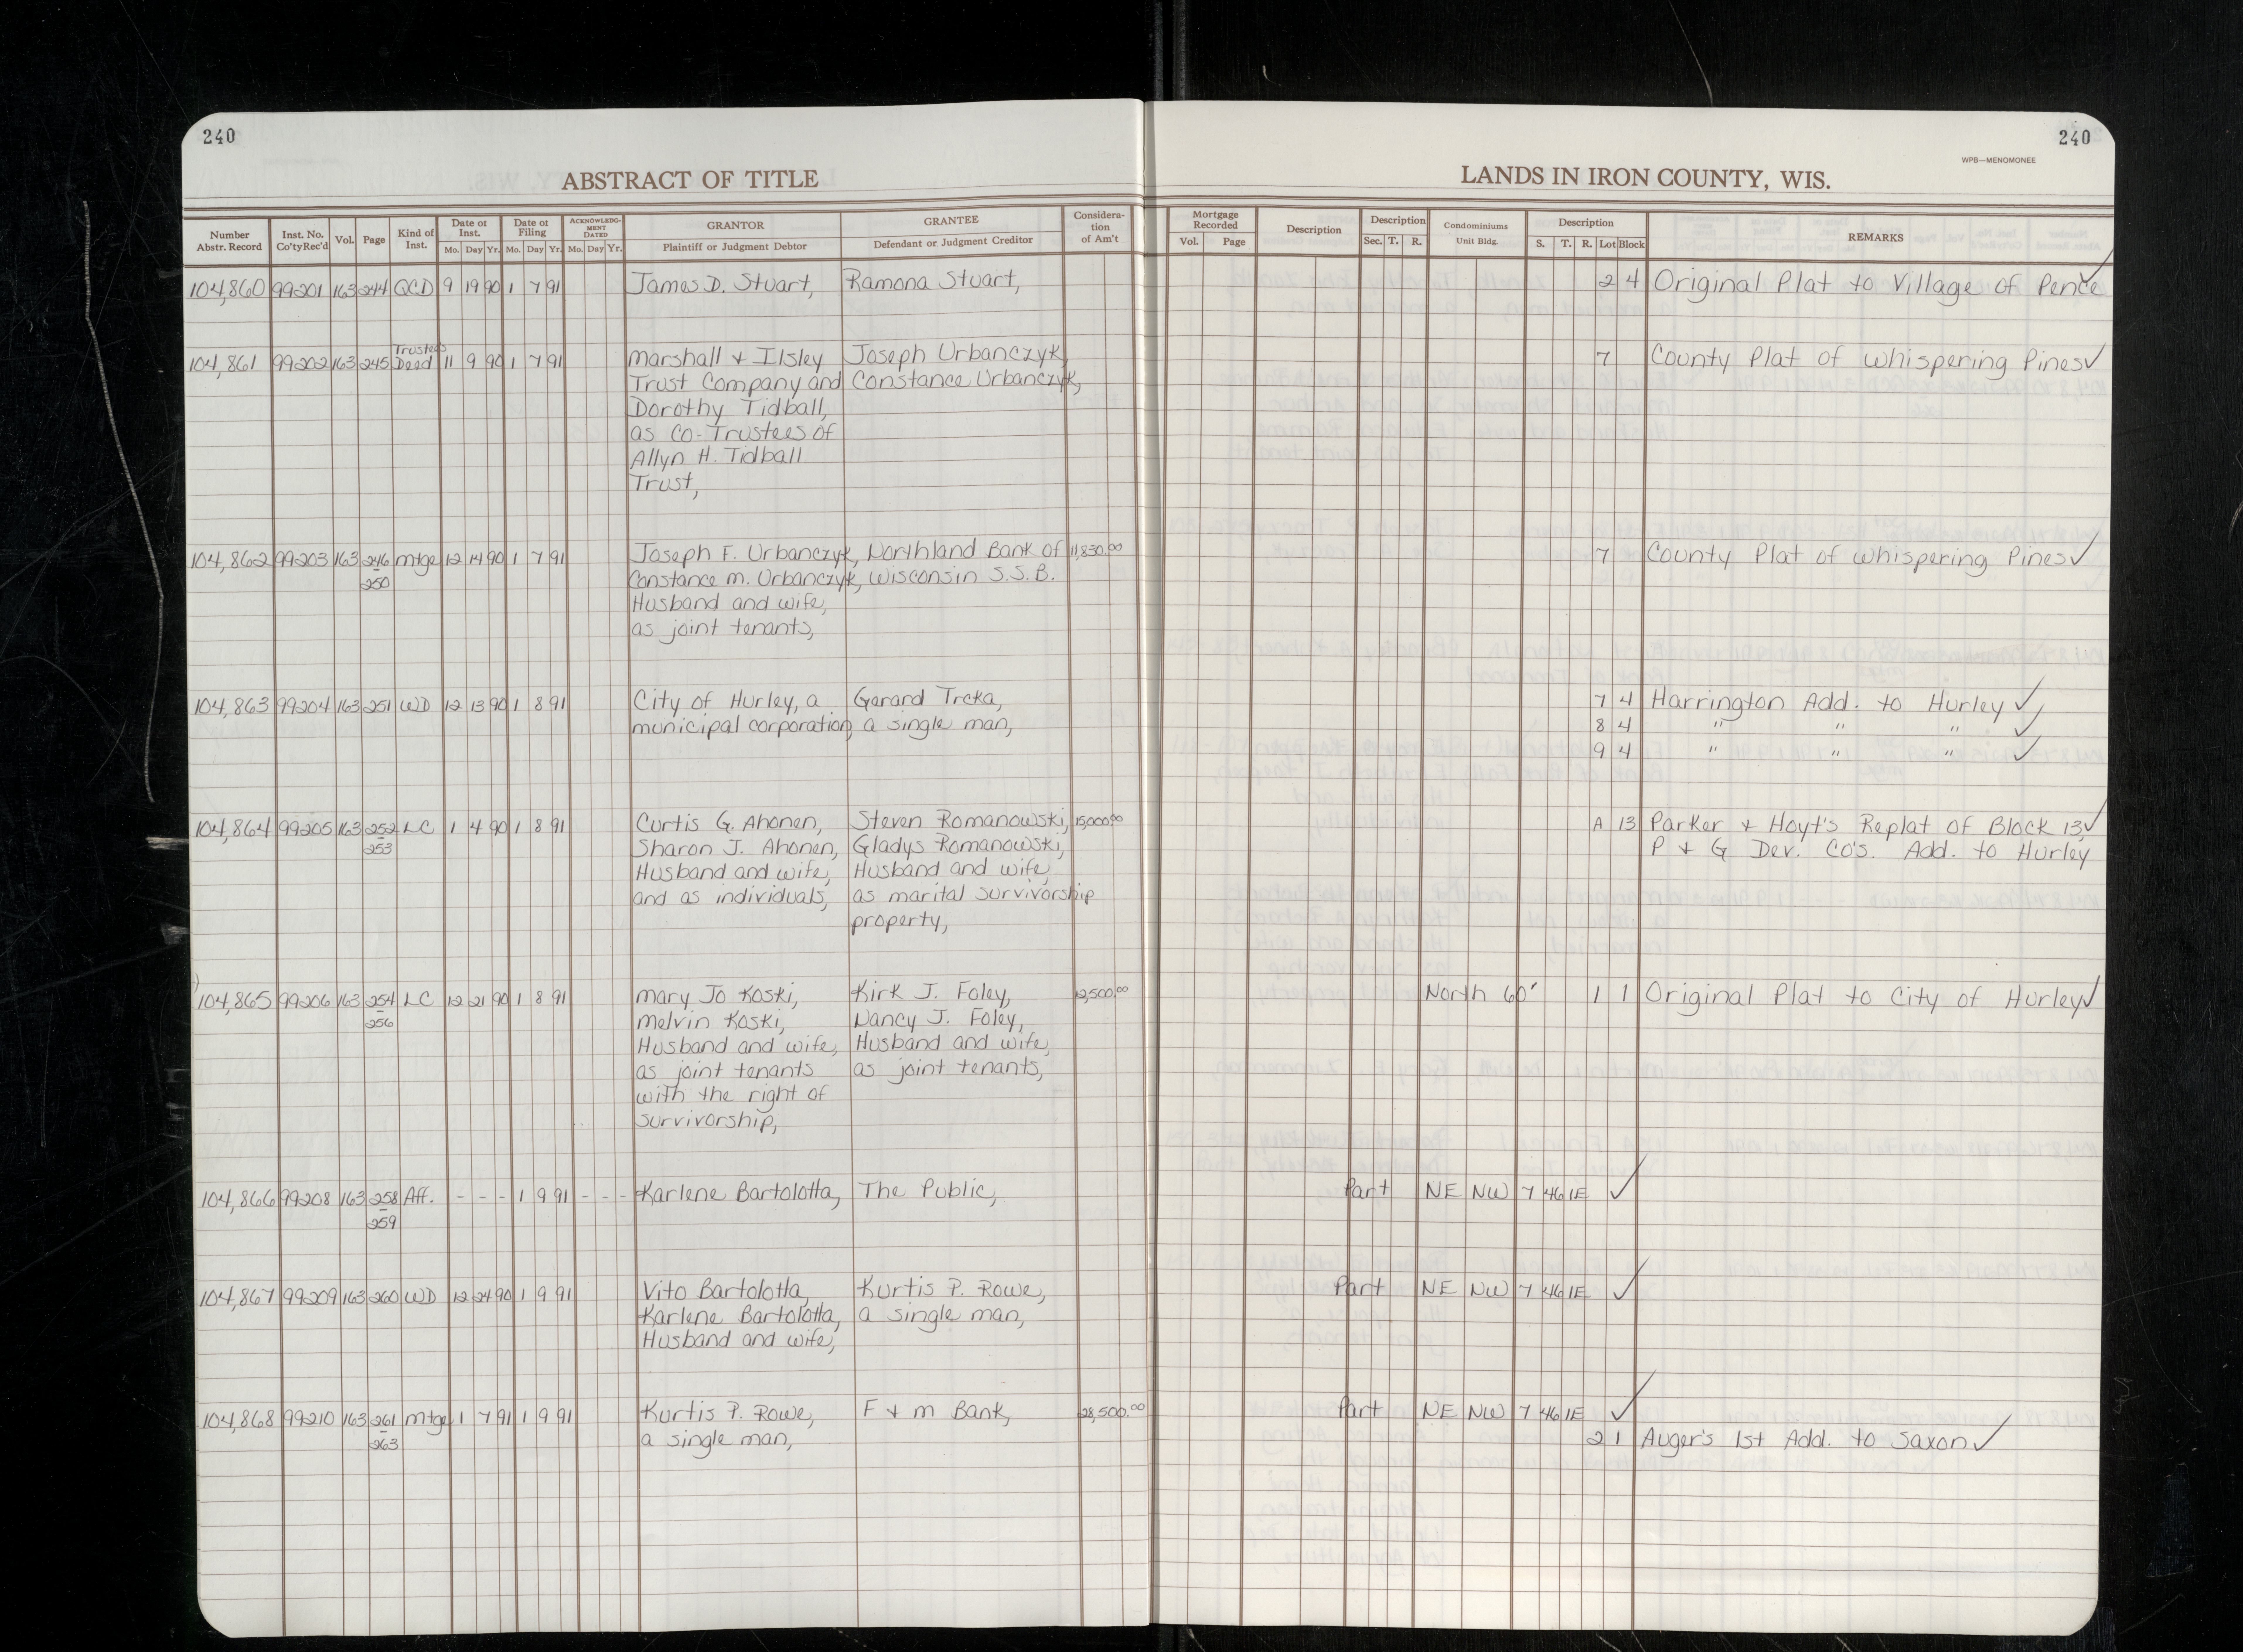 240
240
WPB—MENOMONEE
ABSTRACT OF TITLE
LANDS IN IRON COUNTY, WIS.
Number Abstr. Record Inst. No. Co'tyRec'd Vol. Page Kind of Inst. Date of Inst. Mo. Day Yr. Date of Filing Mo. Day Yr. ACKNOWLEDGMENT DATED Mo. Day Yr. GRANTOR Plaintiff or Judgment Debtor GRANTEE Defendant or Judgment Creditor Consideration of Am't Mortgage Recorded Vol. Page Description Description Sec. T. R. Condominiums Unit Bldg. Description S. T. R. Lot Block REMARKS
104,860 99201 163 244 QCD 9 19 90 1 7 91 James D. Stuart, Ramona Stuart, 2 4 Original Plat to Village of Pence ✓
Trustees
104,861 99202 163 245 Deed 11 9 90 1 7 91 Marshall & Ilsley Joseph Urbanczyk, 7 County Plat of Whispering Pines ✓
Trust Company and Constance Urbanczyk,
Dorothy Tidball,
as Co-Trustees of
Allyn H. Tidball
Trust,
104,862 99203 163 246 mtge 12 14 90 1 7 91 Joseph F. Urbanczyk, Northland Bank of 11,830.00 7 County Plat of Whispering Pines ✓
- 250 Constance M. Urbanczyk, Wisconsin S.S.B.
Husband and wife,
as joint tenants,
104,863 99204 163 251 WD 12 13 90 1 8 91 City of Hurley, a Gerard Trcka, 7 4 Harrington Add. to Hurley ✓
municipal corporation, a single man, 8 4 " " " ✓
9 4 " " " ✓
104,864 99205 163 252 LC 1 4 90 1 8 91 Curtis G. Ahonen, Steven Romanowski, 15,000.00 A 13 Parker & Hoyt's Replat of Block 13, ✓
- 253 Sharon J. Ahonen, Gladys Romanowski, P & G Dev. Co's. Add. to Hurley
Husband and wife, Husband and wife,
and as individuals, as marital survivorship
property,
104,865 99206 163 254 LC 12 21 90 1 8 91 Mary Jo Koski, Kirk J. Foley, 12,500.00 North 60' 1 1 Original Plat to City of Hurley ✓
- 256 Melvin Koski, Nancy J. Foley,
Husband and wife, Husband and wife,
as joint tenants as joint tenants,
with the right of
survivorship,
104,866 99208 163 258 Aff. - - - 1 9 91 - - - Karlene Bartolotta, The Public, Part NE NW 7 46 1E ✓
- 259
104,867 99209 163 260 WD 12 24 90 1 9 91 Vito Bartolotta, Kurtis P. Rowe, Part NE NW 7 46 1E ✓
Karlene Bartolotta, a single man,
Husband and wife,
104,868 99210 163 261 mtge 1 7 91 1 9 91 Kurtis P. Rowe, F & M Bank, 28,500.00 Part NE NW 7 46 1E ✓
- 263 a single man, 2 1 Auger's 1st Add. to Saxon ✓